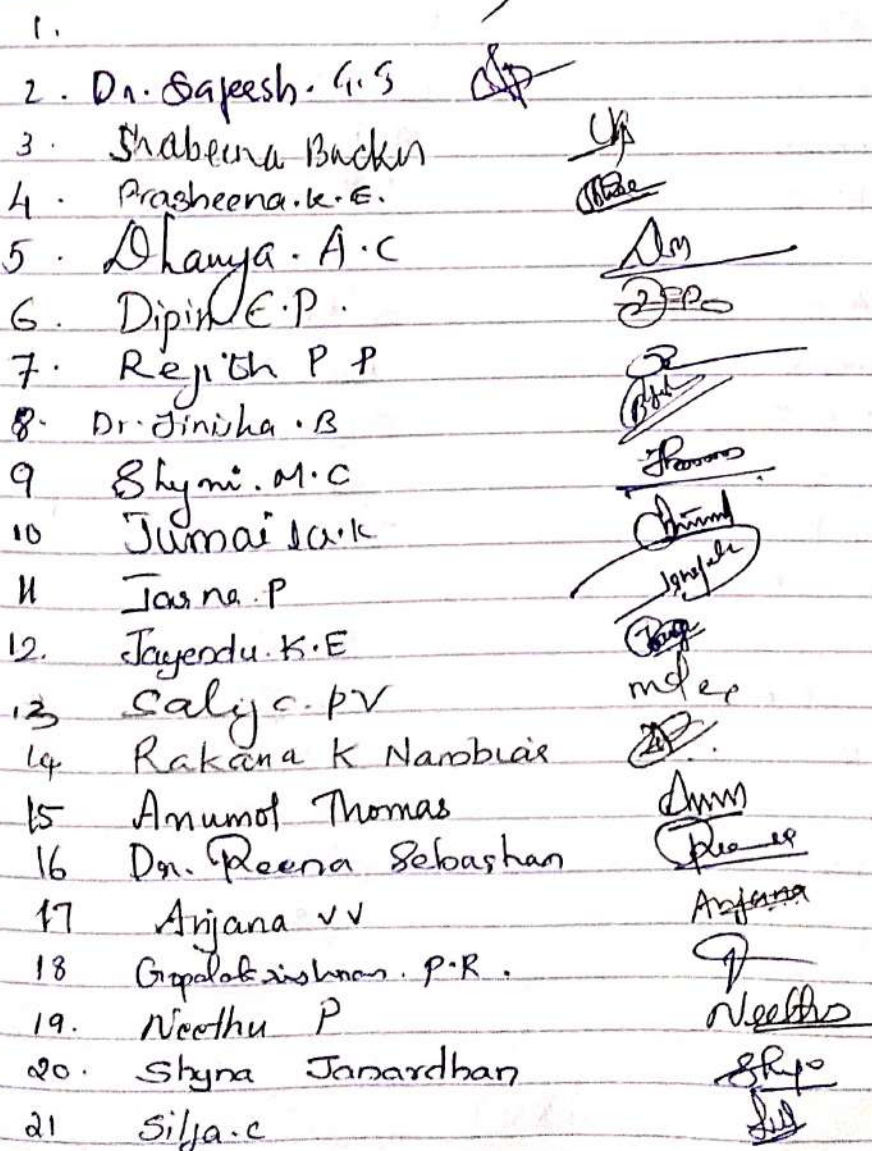 1.
2. Dr. Sajeesh. G.S
3. Shabeena Backer
4. Prasheena.K.E.
5. Dhanya. A.C
6. Dipin E.P.
7. Rejith P P
8. Dr. Jinisha. B
9 Shymi. M.C
10 Jumaila.K
11 Jasna.P
12. Jayendu.K.E
13 Saly c. PV
14 Rakana K Nambiar
15 Anumol Thomas
16 Dr. Reena Sebastian
17 Anjana VV Anjana
18 Gopalakrishnan. P.R.
19. Neethu P Neethu
20. Shyna Janardhan
21 Silja.c